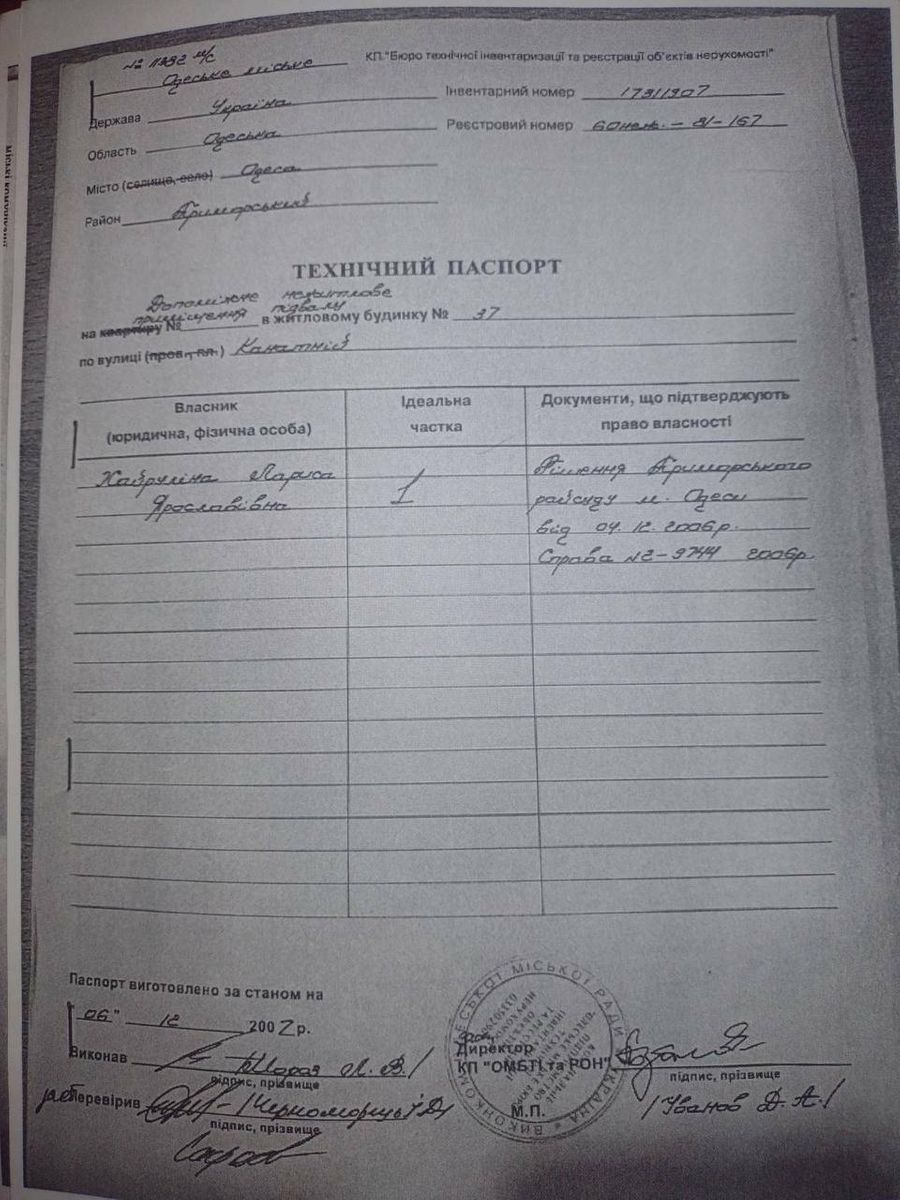 № 11792 м/с
Одеське міське КП."Бюро технічної інвентаризації та реєстрації об'єктів нерухомості"
Держава Україна
Інвентарний номер 17311907
Область Одеська
Реєстровий номер 60неж.-81-157
Місто (селище, село) Одеса
Район Приморський
ТЕХНІЧНИЙ ПАСПОРТ
Допоміжне нежитлове
приміщення підвалу
на квартиру № в житловому будинку № 37
по вулиці (пров., пл.) Канатній
Власник
(юридична, фізична особа)
Ідеальна
частка
Документи, що підтверджують
право власності
Хабруліна Лариса
Ярославівна
1
Рішення Приморського
райсуду м. Одеси
від 04.12.2006р.
Справа №2-9744 2006р.
Паспорт виготовлено за станом на
06" 12 2007р.
Виконав Л. В./
підпис, прізвище
Перевірив
підпис, прізвище
Директор
КП "ОМБТІ та РОН"
підпис, прізвище
М.П.
/Іванов Д. А./